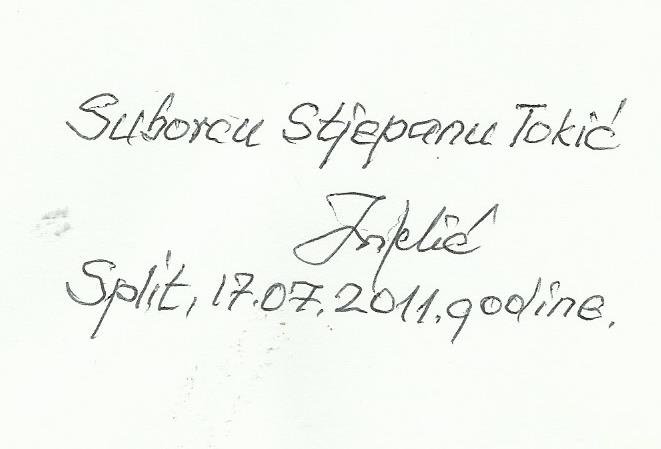 Suborcu Stjepanu Tokić
Split, 17.07.2011.godine.